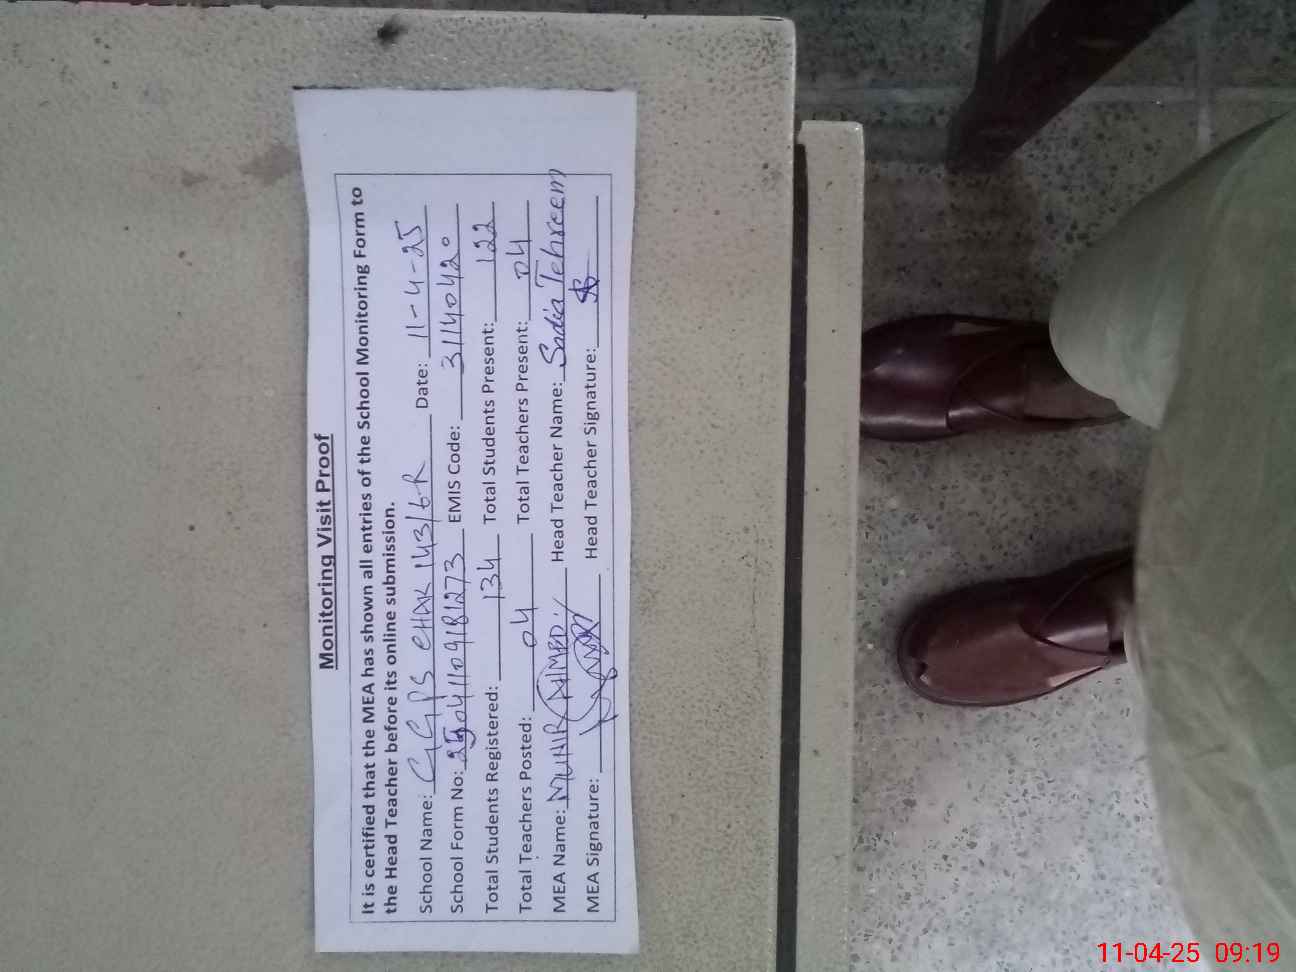 Monitoring Visit Proof
It is certified that the MEA has shown all entries of the School Monitoring Form to
the Head Teacher before its online submission.
School Name: GGPS CHAK 143/6-R Date: 11-4-25
School Form No: 25041109181273 EMIS Code: 31140420
Total Students Registered: 134 Total Students Present: 122
Total Teachers Posted: 04 Total Teachers Present: 04
MEA Name: MUNIR AHMED Head Teacher Name: Sadia Tehreem
MEA Signature: Head Teacher Signature:
11-04-25 09:19